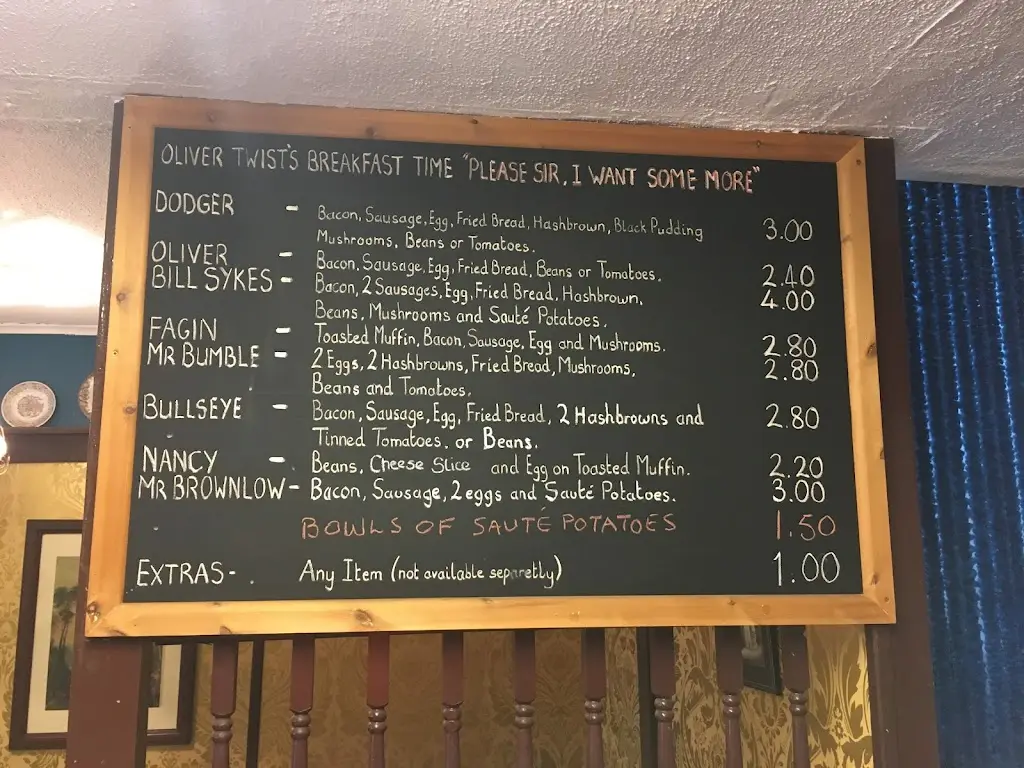 OLIVER TWIST'S BREAKFAST TIME "PLEASE SIR, I WANT SOME MORE"
DODGER - Bacon, Sausage, Egg, Fried Bread, Hashbrown, Black Pudding 3.00
Mushrooms, Beans or Tomatoes.
OLIVER - Bacon, Sausage, Egg, Fried Bread, Beans or Tomatoes. 2.40
BILL SYKES - Bacon, 2 Sausages, Egg, Fried Bread, Hashbrown, 4.00
Beans, Mushrooms and Sauté Potatoes.
FAGIN - Toasted Muffin, Bacon, Sausage, Egg and Mushrooms. 2.80
MR BUMBLE - 2 Eggs, 2 Hashbrowns, Fried Bread, Mushrooms, 2.80
Beans and Tomatoes.
BULLSEYE - Bacon, Sausage, Egg, Fried Bread, 2 Hashbrowns and 2.80
Tinned Tomatoes. or Beans.
NANCY - Beans, Cheese Slice and Egg on Toasted Muffin. 2.20
MR BROWNLOW - Bacon, Sausage, 2 eggs and Sauté Potatoes. 3.00
BOWLS OF SAUTÉ POTATOES 1.50
EXTRAS - . Any Item (not available separetly) 1.00